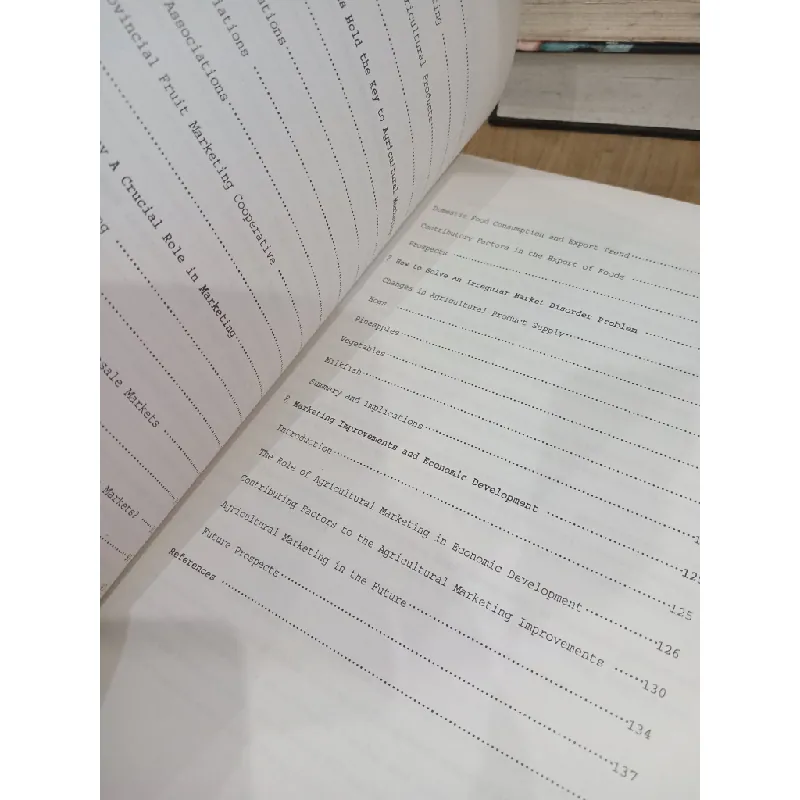 ns Hold the Key to Agricultural Market
cultural Products
ting
ations
iations
Associations
ovincial Fruit Marketing Cooperative
y A Crucial Role in Marketing
ng
sale Markets
Markets)
Domestic Food Consumption and Export Trend
Contributory Factors in the Export of Foods
Prospects
? How to Solve An Irregular Market Disorder Problem
Changes in Agricultural Product Supply
Hogs
Pineapples
Vegetables
Milkfish
Summary and Implications
Marketing Improvements and Economic Development
Introduction 125
The Role of Agricultural Marketing in Economic Development 126
Contributing Factors to the Agricultural Marketing Improvements 130
Agricultural Marketing in the Future 134
Future Prospects 137
References